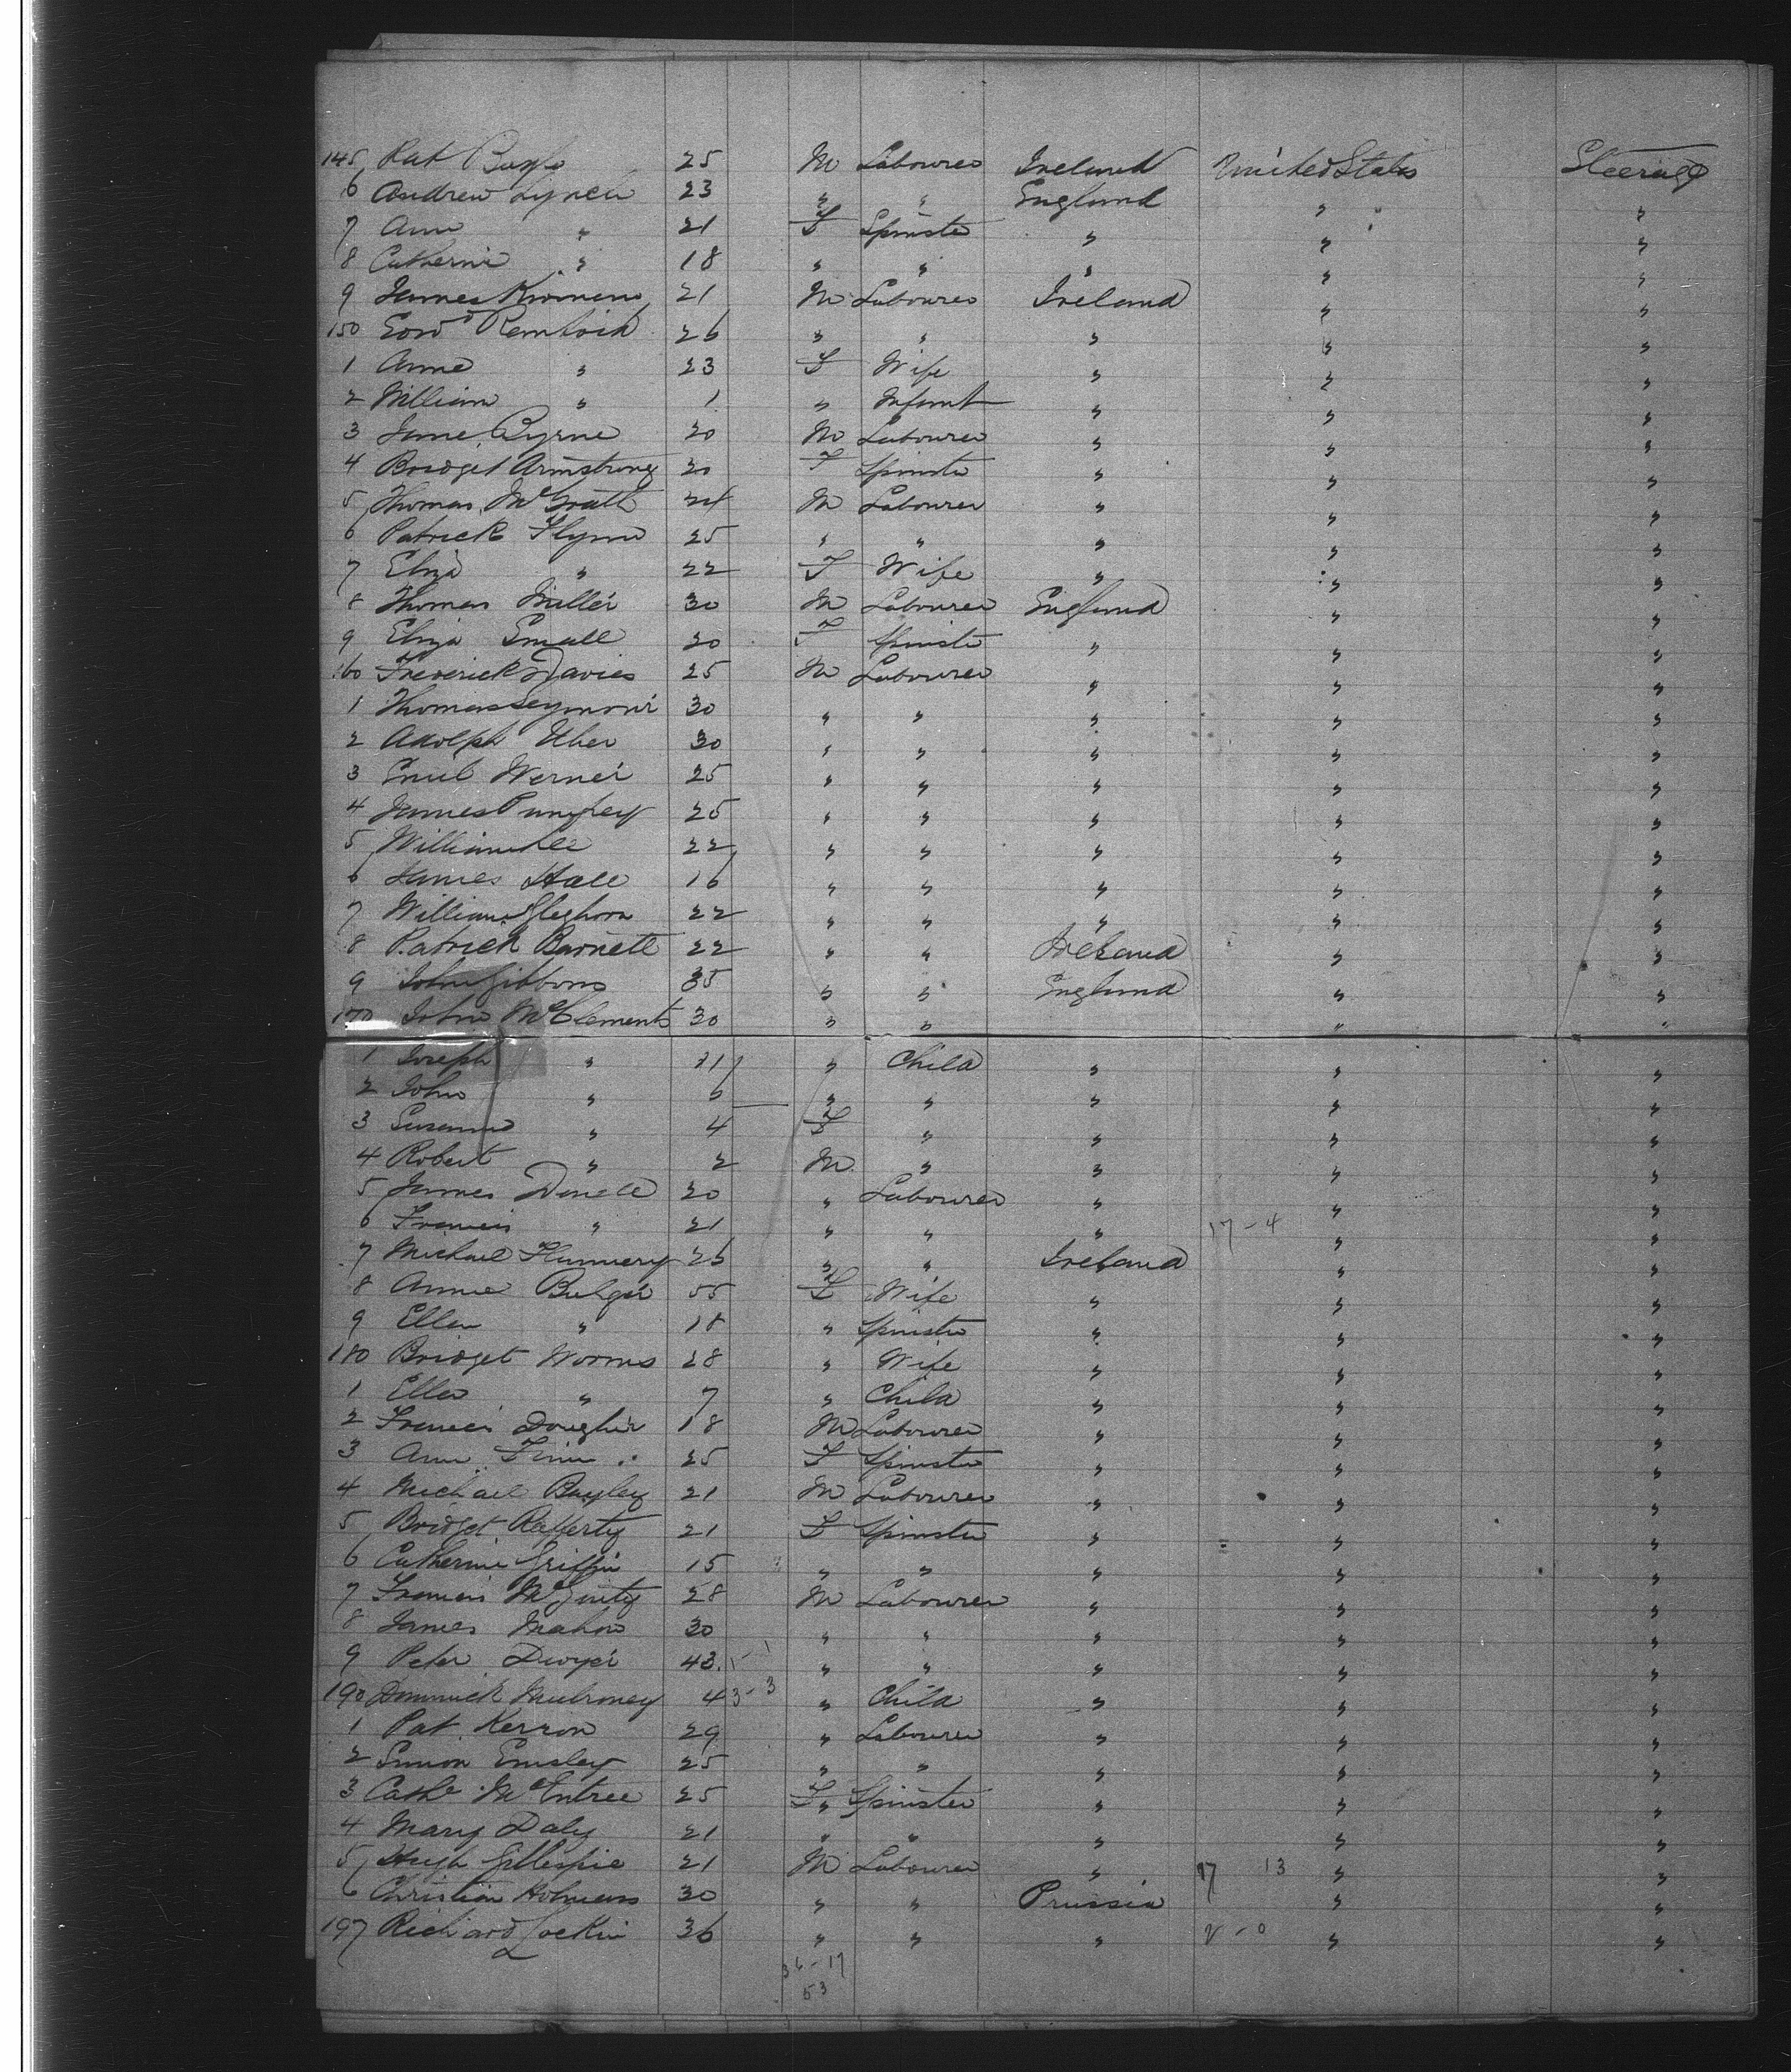 145 Pat 25 M Labourer Ireland United States Steerage
6 Andrew Lynch 23 " " England " "
7 Ann " 21 F Spinster " " "
8 Catherine " 18 " " " " "
9 James 21 M Labourer Ireland " "
150 Edwd 26 " " " " "
1 Anne " 23 F Wife " " "
2 William " 1 " Infant " " "
3 Jame Byrne 20 M Labourer " " "
4 Bridget Armstrong 20 F Spinster " " "
5 Thomas McGrath 24 M Labourer " " "
6 Patrick Flynn 25 " " " " "
7 Eliza " 22 F Wife " " "
8 Thomas Miller 30 M Labourer England " "
9 Eliza Small 20 F Spinster " " "
160 Frederick Davies 25 M Labourer " " "
1 Thomas Seymour 30 " " " " "
2 Adolph Uber 30 " " " " "
3 Emil Werner 25 " " " " "
4 James Pumfrey 25 " " " " "
5 William Lee 22 " " " " "
6 James Hall 16 " " " " "
7 William Gleghorn 22 " " " " "
8 Patrick Barnett 22 " " Ireland " "
9 John Gibbons 35 " " England " "
170 John McClements 30 " " " "
1 Joseph " 11 " Child " " "
2 John " 5 " " " " "
3 Susanna " 4 F " " " "
4 Robert " 2 M " " " "
5 James 20 " Labourer " " "
6 Francis " 21 " " " 17-4 " "
7 Michael Flannery 26 " " Ireland " "
8 Annie Bulger 55 F Wife " " "
9 Ellen " 18 " Spinster " " "
180 Bridget Worms 28 " Wife " " "
1 Ellen " 7 " Child " " "
2 Francis 18 M Labourer " " "
3 Ann Finn 25 F Spinster " " "
4 Michael Bayley 21 M Labourer " " "
5 Bridget Rafferty 21 F Spinster " " "
6 Catherine Griffin 15 " " " " "
7 Francis McGinty 28 M Labourer " " "
8 James Mahon 30 " " " " "
9 Peter Dwyer 43 " " " " "
190 Dominick Mulroney 4 3-3 " Child " " "
1 Pat Kerron 29 " Labourer " " "
2 Simon Emsley 25 " " " " "
3 Cathe McEntree 25 F " Spinster " " "
4 Mary Daly 21 " " " " "
5 Hugh Gillespie 21 M Labourer " 17 13 " "
6 Christian 30 " " Prussia " "
197 Richard Lockin 36 " " " 2-0 " "
36-17
53